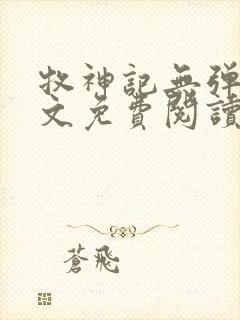 牧神記無彈
文免費閱讀
蒼飛